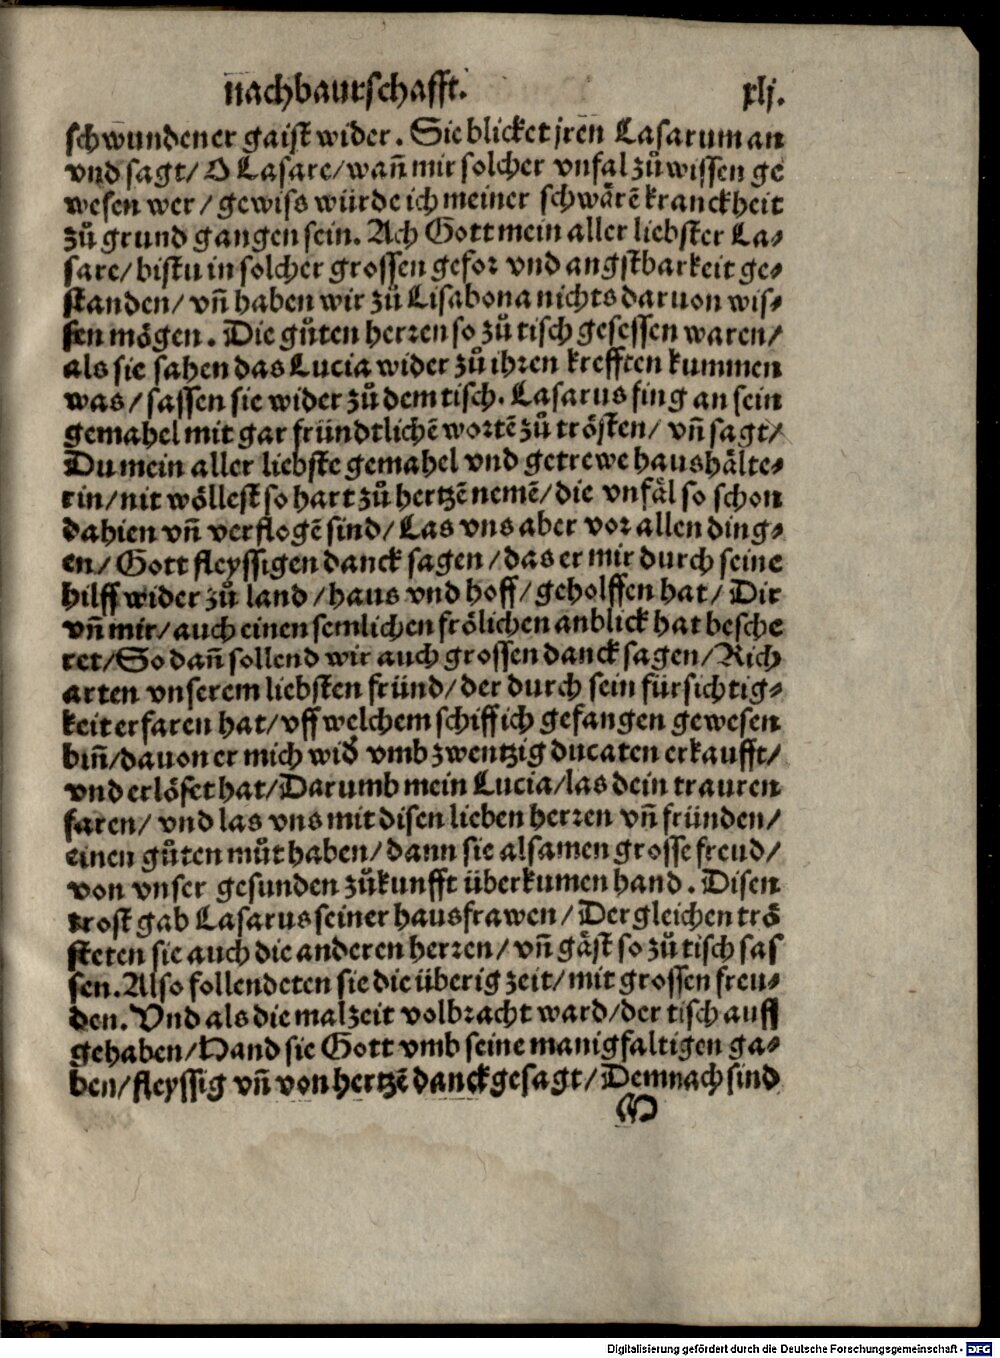 nachbaurschafft. xlj.
schwundener gaist wider. Sie blicket jren Lasarum an
vnd sagt/ O Lasare/ wañ mir solcher vnfal zů wissen ge
wesen wer/ gewiss würde ich meiner schwärẽ kranckheit
zů grund gangen sein. Ach Gott mein aller liebster La⸗
sare/ bistu in solcher grossen gefor vnd angstbarkeit ge⸗
standen/ vñ haben wir zů Lisabona nichts daruon wis⸗
sen mögen. Die gůten herren so zů tisch gesessen waren/
als sie sahen das Lucia wider zů ihren krefften kummen
was/ sassen sie wider zů dem tisch. Lasarus fing an sein
gemahel mit gar fründtlichẽ wortẽ zů trösten/ vñ sagt/
Du mein aller liebste gemahel vnd getrewe haushälte⸗
rin/ nit wöllest so hart zů hertzẽ nemẽ/ die vnfäl so schon
dahien vñ verflogẽ sind/ Las vns aber vor allen ding⸗
en/ Gott fleyssigen danck sagen/ das er mir durch seine
hilff wider zů land/ haus vnd hoff/ geholffen hat/ Dir
vñ mir/ auch einen semlichen frölichen anblick hat besche
ret/ So dañ sollend wir auch grossen danck sagen/ Rich
arten vnserem liebsten fründ/ der durch sein fürsichtig⸗
keit erfaren hat/ vff welchem schiff ich gefangen gewesen
biñ/ dauon er mich wid̃ vmb zwentzig ducaten erkaufft/
vnd erlöset hat/ Darumb mein Lucia/ las dein trauren
faren/ vnd las vns mit disen lieben herren vñ fründen/
einen gůten můt haben/ dann sie alsamen grosse freud/
von vnser gesunden zůkunfft überkumen hand. Disen
trost gab Lasarus seiner hausfrawen/ Der gleichen trö
steten sie auch die anderen herren/ vñ gäst so zů tisch sas
sen. Also follendeten sie die überig zeit/ mit grossen freu⸗
den. Vnd als die malzeit volbracht ward/ der tisch auff
gehaben/ Hand sie Gott vmb seine manigfaltigen ga⸗
ben/ fleyssig vñ von hertzẽ danck gesagt/ Demnach sind
M
Digitalisierung gefördert durch die Deutsche Forschungsgemeinschaft - DFG